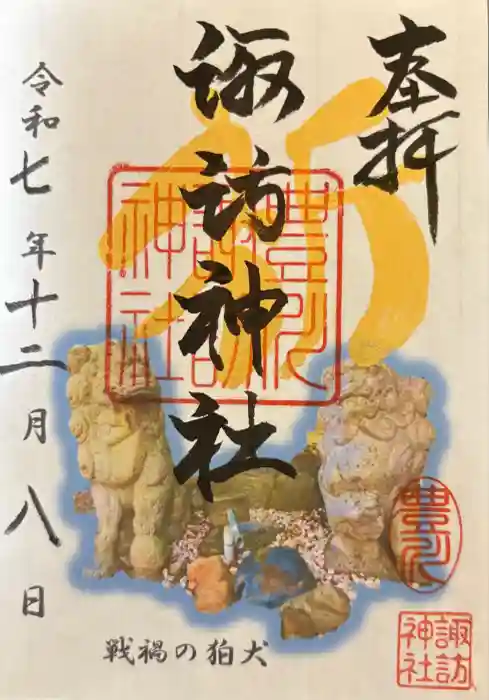 奉拝
諏訪神社
令和七年十二月八日
戦禍の狛犬
豊川
諏訪
神社
豊川
諏訪
神社